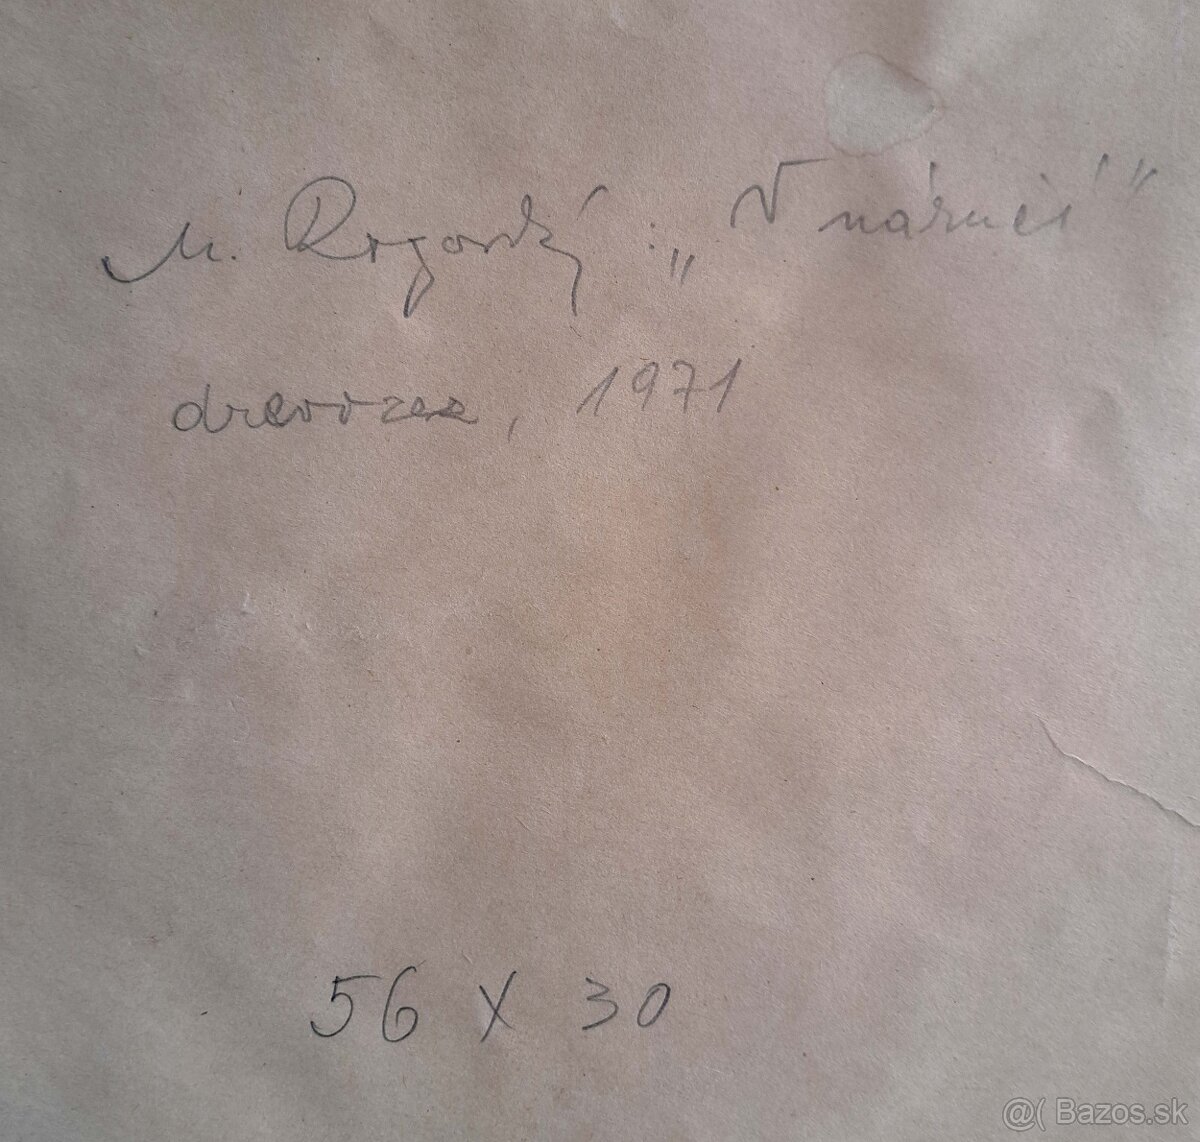 M. Rogovský : „V náručí"
drevorez, 1971
56 x 30
@( Bazos.sk